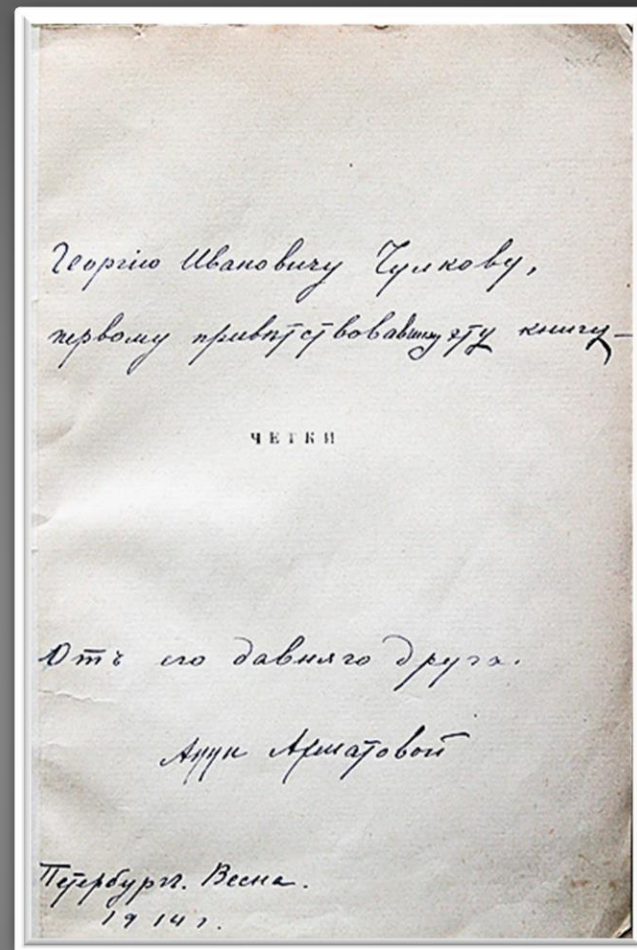 Георгію Ивановичу Чулкову,
первому привѣтствовавшему эту книгу—
ЧЕТКИ
Отъ его давняго друга.
Анны Ахматовой
Петербургъ. Весна.
1914 г.